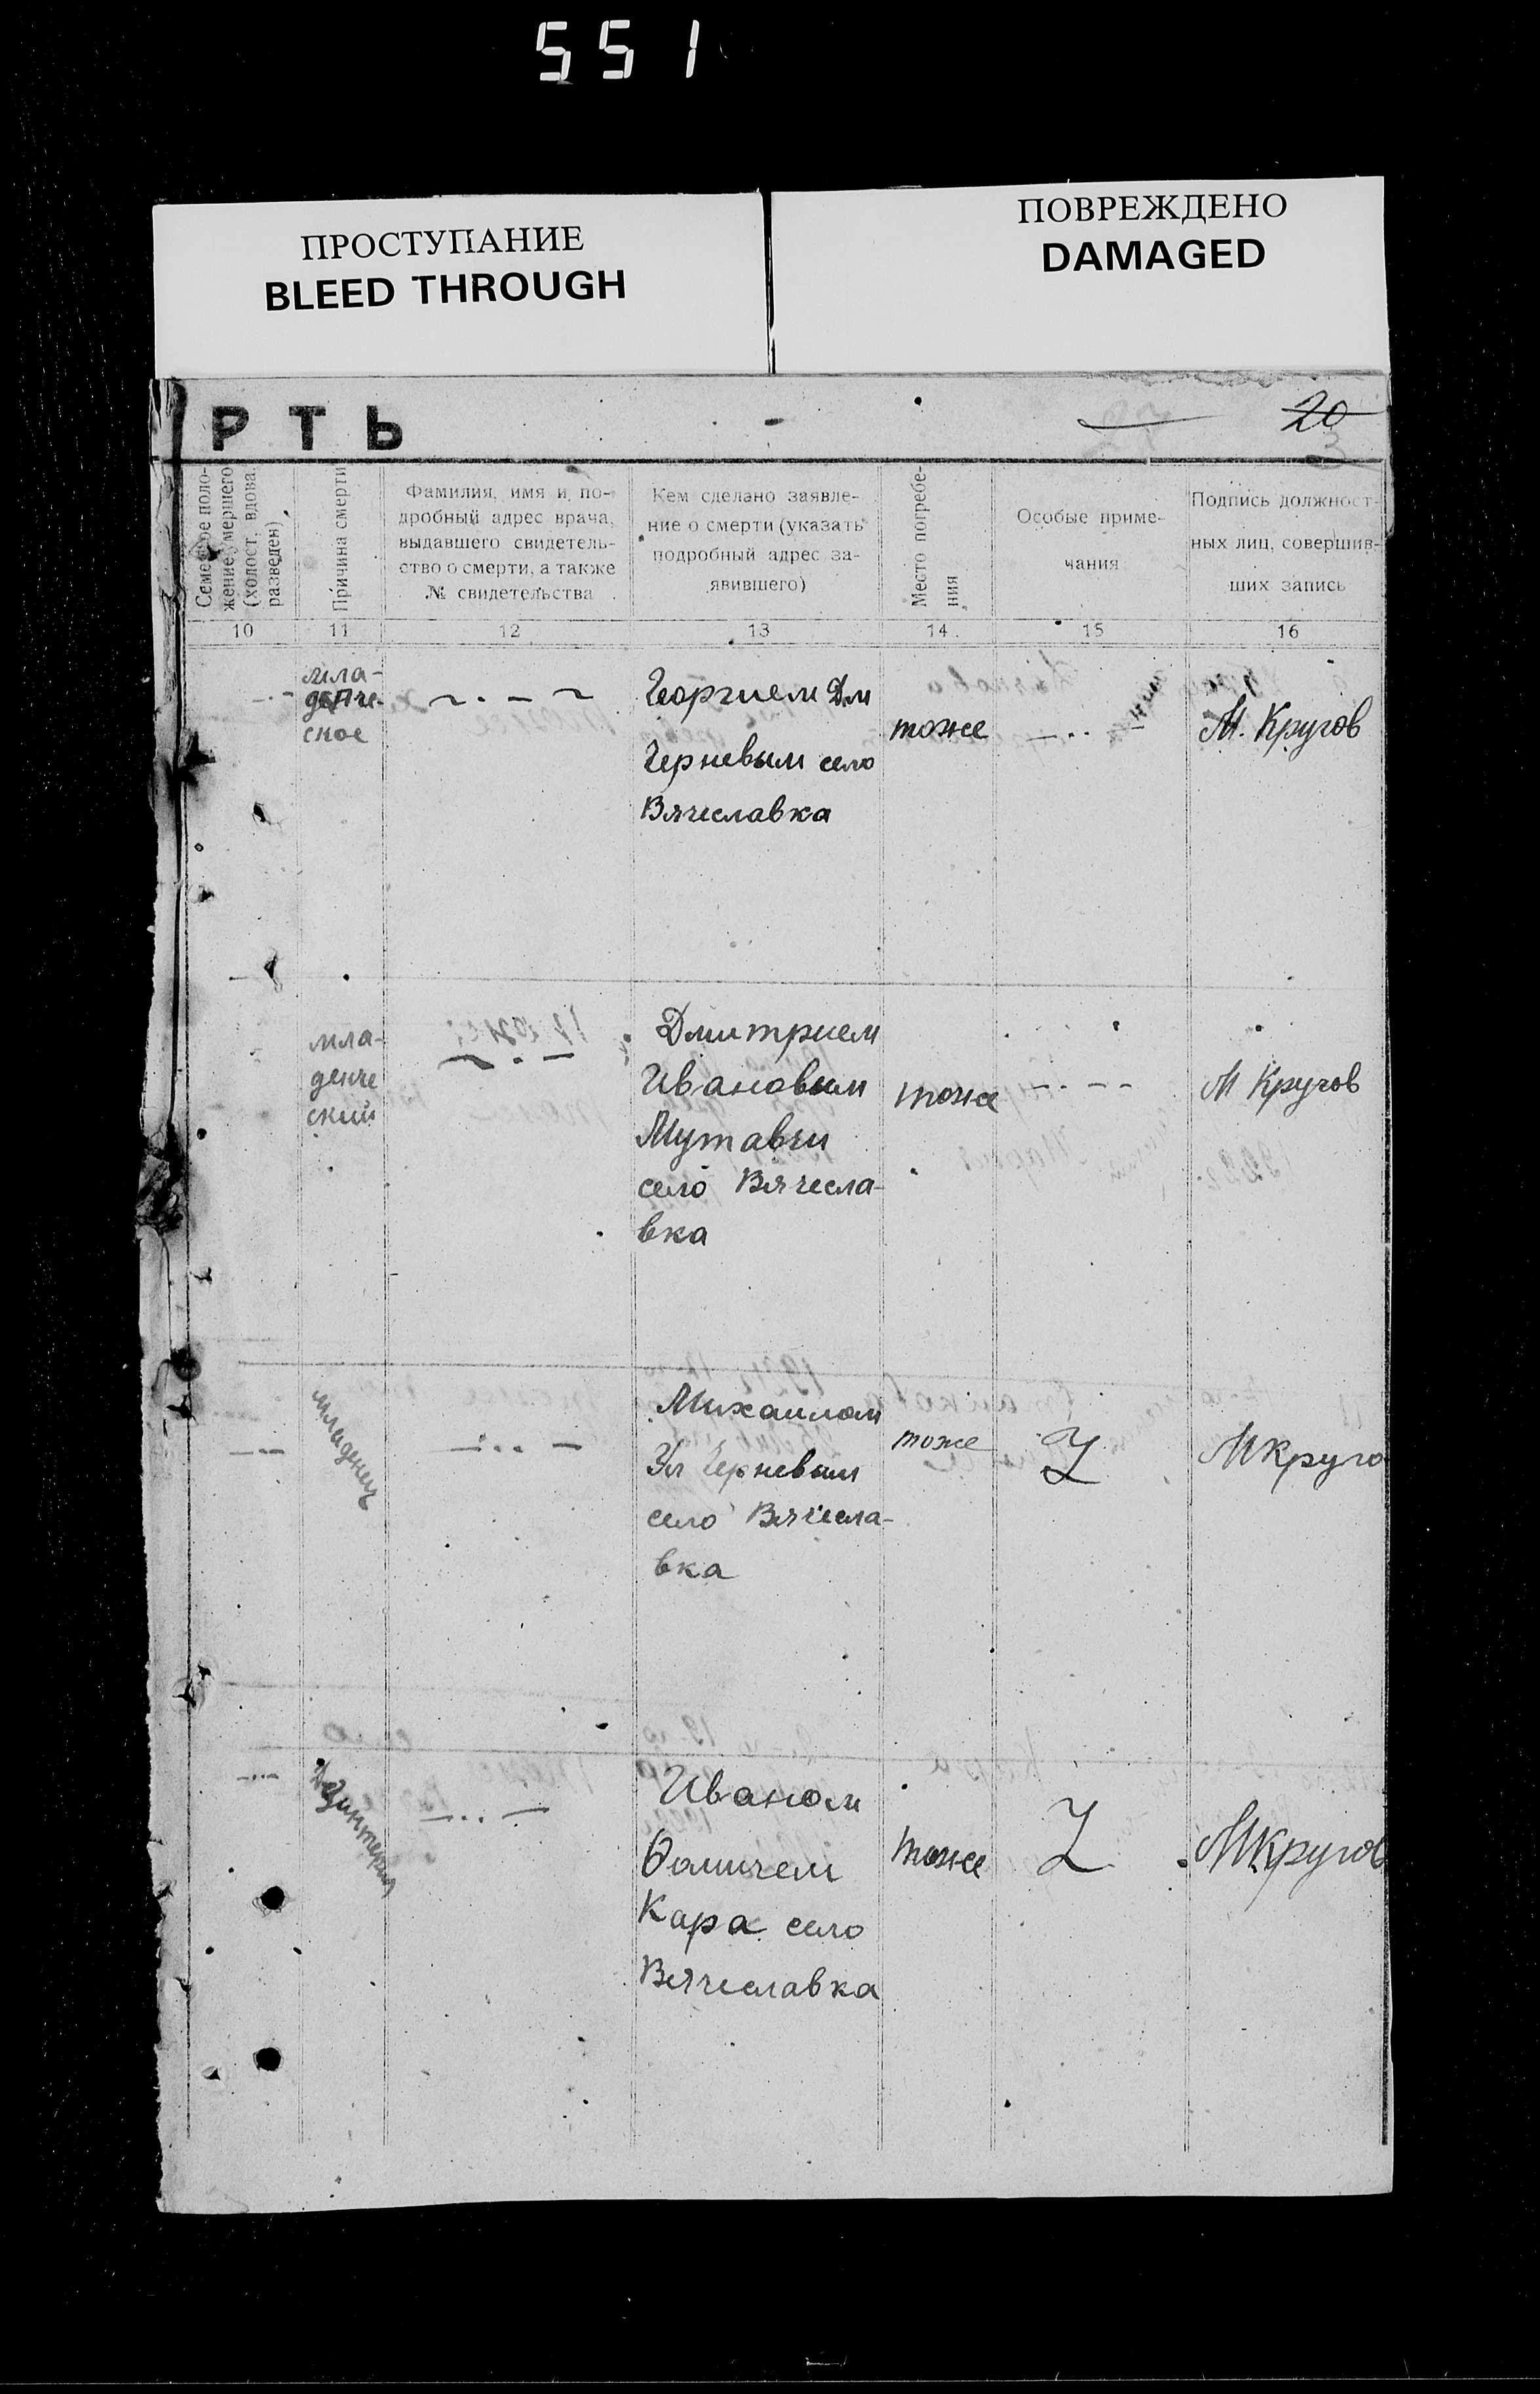 551
ПРОСТУПАНИЕ
BLEED THROUGH
ПОВРЕЖДЕНО
DAMAGED
РТЬ
20
Семейное поло-
жение умершего
(холост, вдова,
разведен)
Причина смерти
Фамилия, имя и по-
дробный адрес врача,
выдавшего свидетель-
ство о смерти, а также
№ свидетельства
Кем сделано заявле-
ние о смерти (указать
подробный адрес за-
явившего)
Место погребе-
ния
Особые приме-
чания
Подпись должност-
ных лиц, совершив-
ших запись
10 11 12 13 14 15 16
мла-
денче-
ское
Георгием Дм
Черневым село
Вячеславка
тоже
М. Кругов
мла-
денче
ский
Дмитрием
Ивановым
Мутавчи
село Вячесла-
вка
тоже
М Кругов
младенец
Михаилом
Ил Черневым
село Вячесла-
вка
тоже
Z
МКруго
Дезинтерия
Иваном
Фомичем
Кара село
Вячеславка
тоже
Z
МКругов